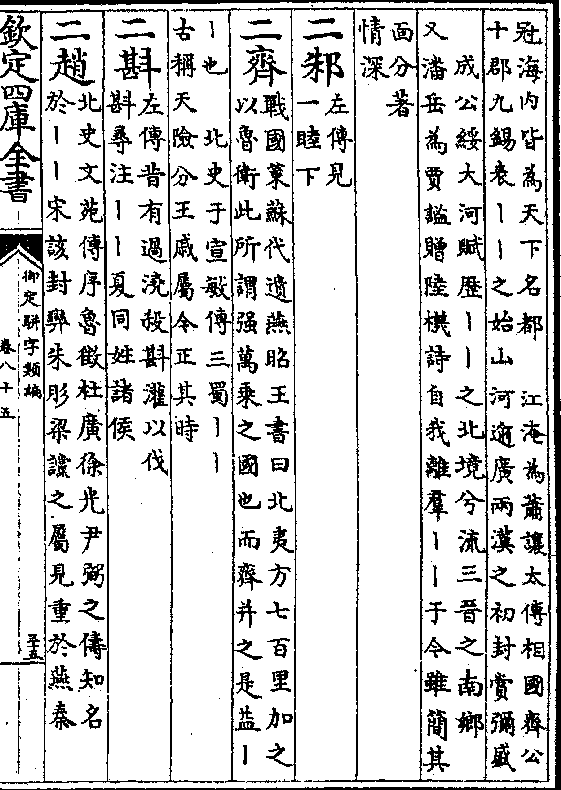 冠海内皆為天下名都 江淹為蕭讓太傅相國齊公
十郡九錫表丨丨之始山河逾廣兩漢之初封賞彌盛
成公綏大河賦歴丨丨之北境兮流三晉之南鄉
又潘岳為賈謐贈陸機詩自我離羣丨丨于今雖簡其
面分著
情深
二邾
左傳見
一睦下
二齊
戰國策蘇代遺燕昭王書曰北夷方七百里加之
以魯衛此所謂强萬乘之國也而齊并之是益丨
丨也 北史于宣敏傳三蜀丨丨
古稱天險分王戚屬今正其時
二斟
左傳昔有過澆殺斟灌以伐
斟尋注丨丨夏同姓諸侯
二趙
北史文苑傳序魯徵杜廣徐光尹弼之儔知名
於丨丨宋該封奕朱彤梁讜之屬見重於燕秦
欽定四庫全書
御定駢字類編
卷八十五